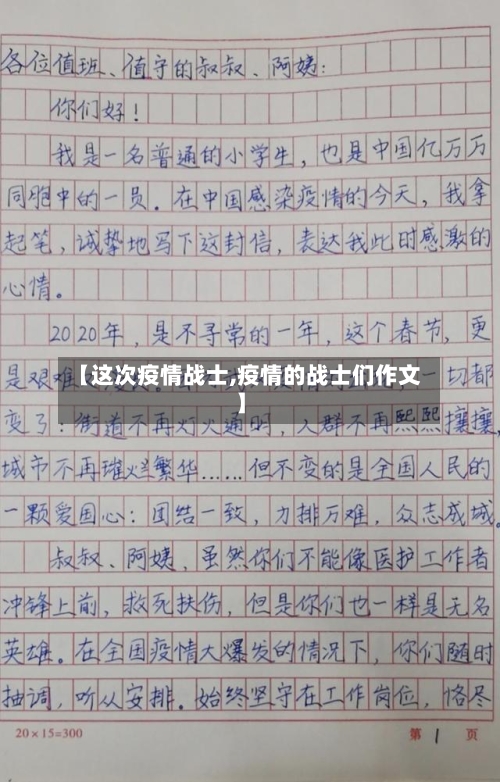 各位值班、值守的叔叔、阿姨：
你们好！
我是一名普通的小学生，也是中国亿万万
同胞中的一员。在中国感染疫情的今天，我拿
起笔，诚挚地写下这封信，表达我此时感激的
心情。
2020年，是不寻常的一年，这个春节，更
是艰难
【这次疫情战士,疫情的战士们作文
】
一切都
变了：街道不再灯火通明，人群不再熙熙攘攘，
城市不再璀烂繁华……但不变的是全国人民的
一颗爱国心：团结一致，力排万难，众志成城。
叔叔、阿姨，虽然你们不能像医护工作者
冲锋上前，救死扶伤，但是你们也一样是无名
英雄。在全国疫情大爆发的情况下，你们随时
抽调，听从安排。始终坚守在工作岗位，恪尽
20×15=300
第1页